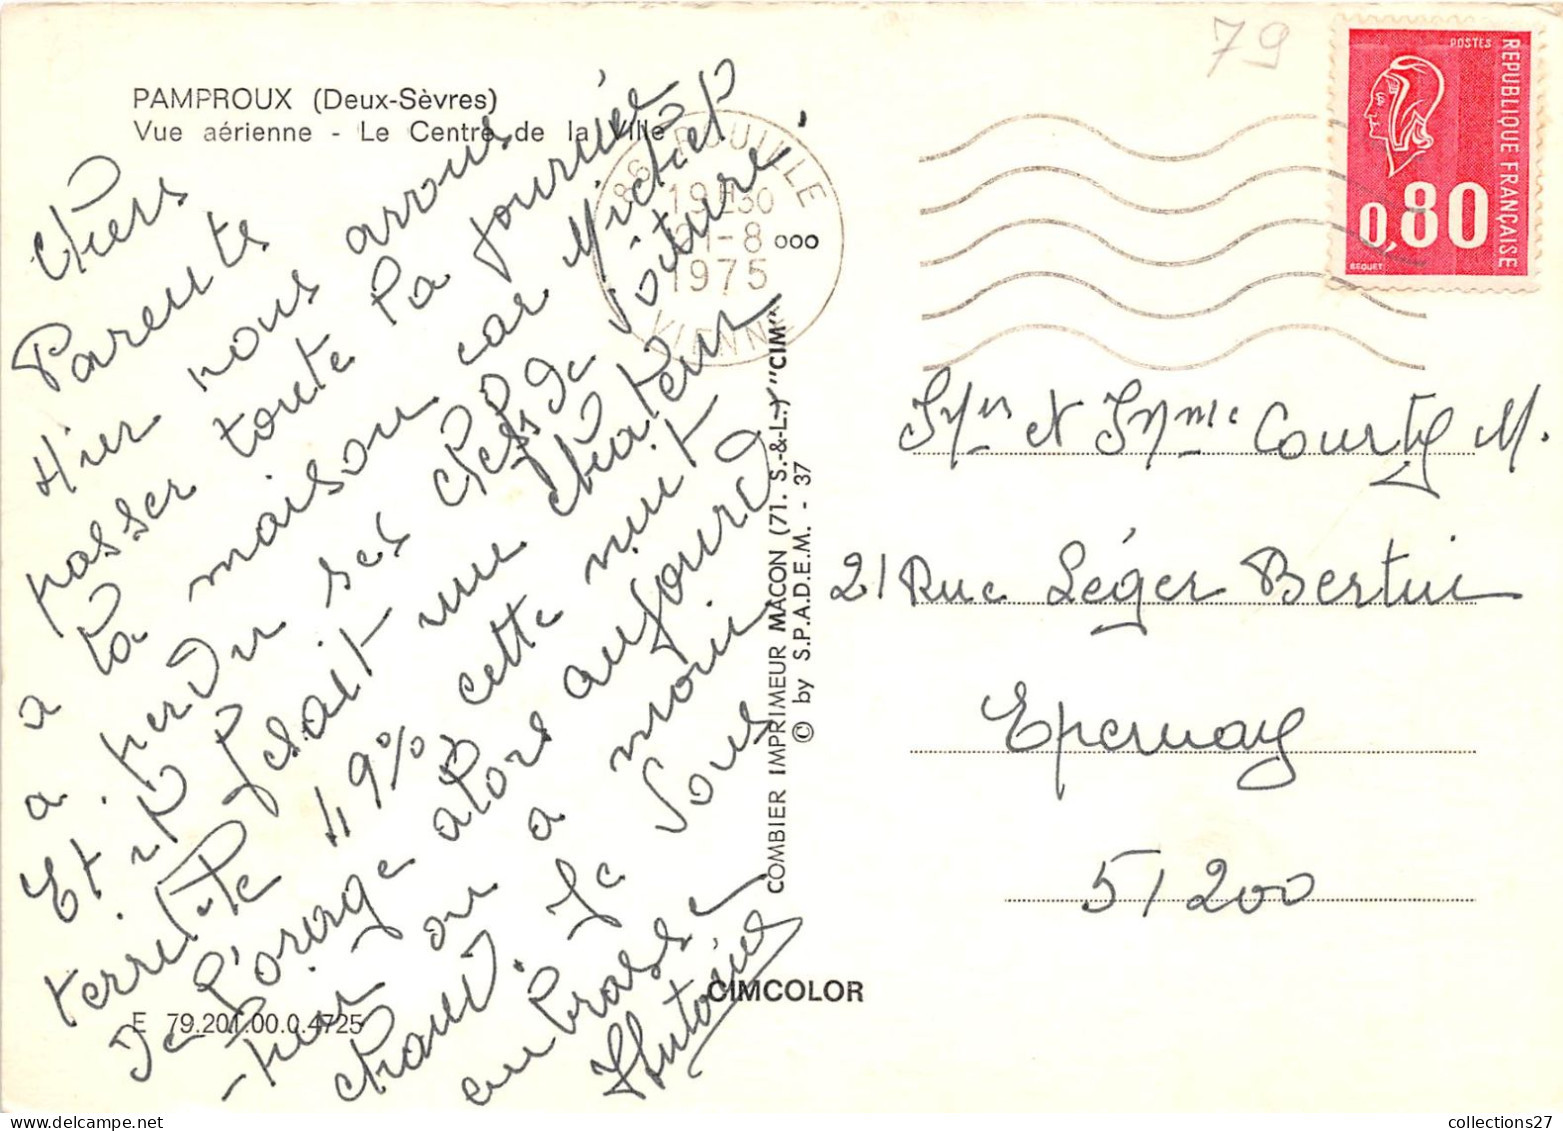 79
PAMPROUX (Deux-Sèvres)
Vue aérienne - Le Centre de la Ville
POSTES
REPUBLIQUE FRANÇAISE
0,80
BEQUET
86 ROUILLE
19H30
21-8
1975
VIENNE
ooo
Chers
Parents
Hier nous avons
passer toute la journée
a la maison car Michel
a perdu ses clefs de voiture.
Et il fesait une chaleur
terrible 49% cette nuit
de l'orage alors aujourd
-hui on a moin
chaud. Je vous
embrasse
COMBIER IMPRIMEUR MACON (71. S.-&-L.) "CIM"
© by S.P.A.D.E.M. - 37
Mr et Mme Courty M.
21 Rue Léger Bertin
Epernay
51200
CIMCOLOR
E 79.201.00.0.4725
collections27